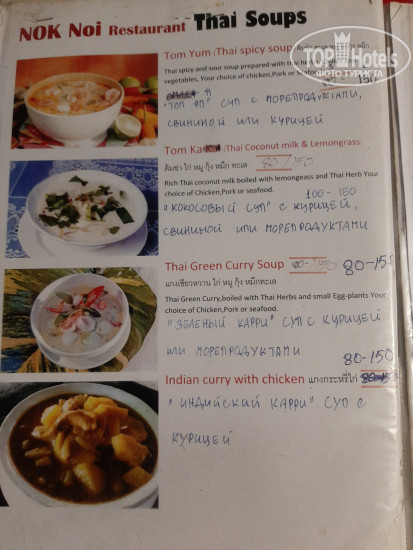 NOK Noi Restaurant Thai Soups
Tom Yum (Thai spicy soup)
Thai spicy and sour soup prepared with thai
vegetables, Your choice of chicken,Pork or Seafood
150
"ТОМ ЯП" СУП С МОРЕПРОДУКТАМИ,
СВИНИНОЙ ИЛИ КУРИЦЕЙ
TOP Hotels
ФОТО ТУРИСТА
Tom Ka (Thai Coconut milk & Lemongrass)
ต้มข่า ไก่ หมู กุ้ง หมึก ทะเล 80/150
Rich Thai coconut milk boiled with lemongeass and Thai Herb Your
choice of Chicken,Pork or seafood. 100-150
"КОКОСОВЫЙ СУП" С КУРИЦЕЙ,
СВИНИНОЙ ИЛИ МОРЕПРОДУКТАМИ
Thai Green Curry Soup 80-150
แกงเขียวหวาน ไก่ หมู กุ้ง หมึกทะเล
Thai Green Curry,boiled with Thai Herbs and small Egg-plants Your
choice of Chicken,Pork or seafood.
"ЗЕЛЕНЫЙ КАРРИ" СУП С КУРИЦЕЙ
ИЛИ МОРЕПРОДУКТАМИ
80-150
Indian curry with chicken แกงกระหรี่ไก่
"ИНДИЙСКИЙ КАРРИ" СУП С
КУРИЦЕЙ